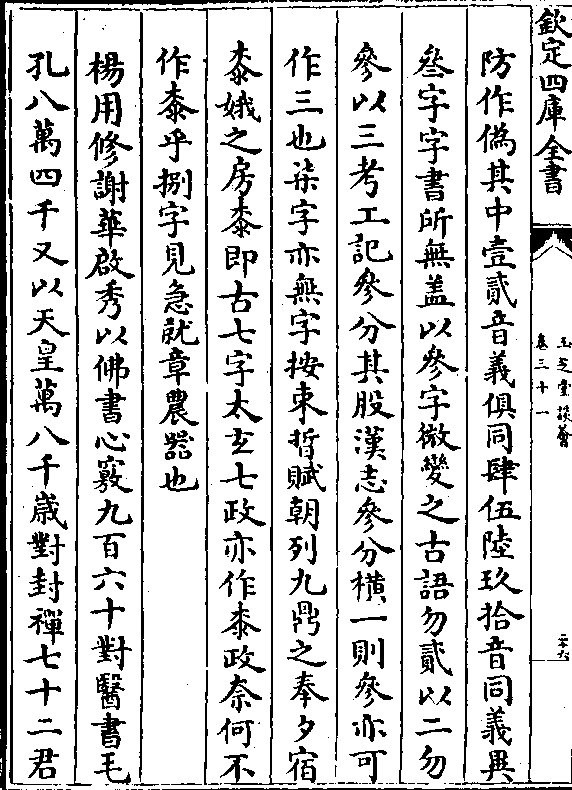 欽定四庫全書
玉芝堂談薈
卷三十一
二六
防作偽其中壹貳音義俱同肆伍陸玖拾音同義異
叁字字書所無葢以參字微變之古語勿貳以二勿
參以三考工記參分其股漢志參分横一則參亦可
作三也柒字亦無字按束晳賦朝列九鼎之奉夕宿
桼娥之房桼即古七字太𤣥七政亦作桼政奈何不
作桼乎捌字見急就章農器也
楊用修謝華啟秀以佛書心竅九百六十對醫書毛
孔八萬四千又以天皇萬八千歲對封禪七十二君